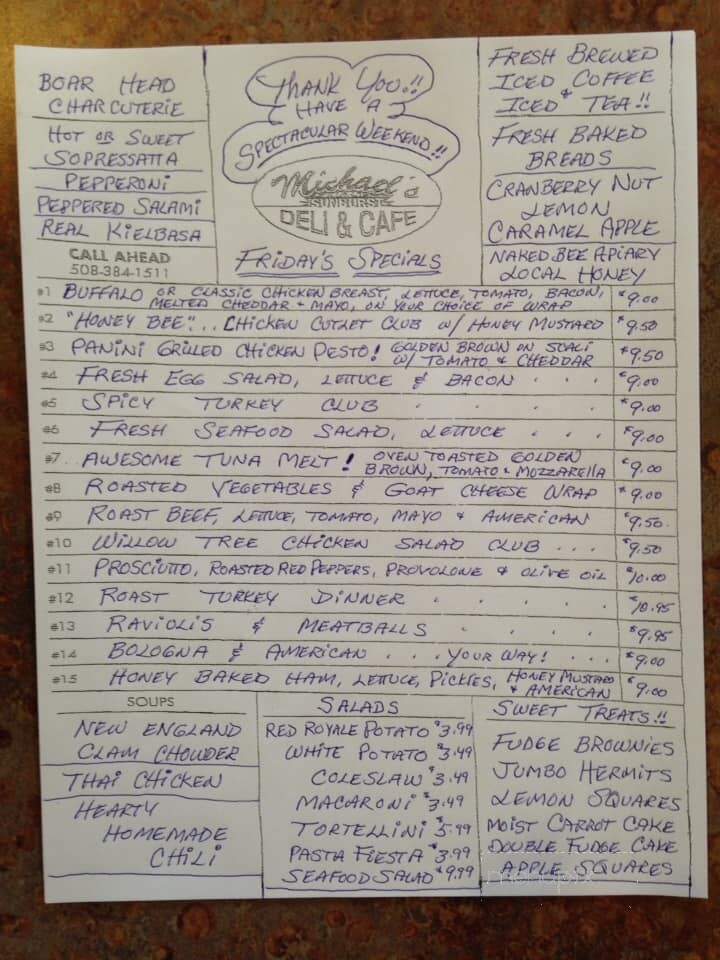 BOAR HEAD
CHARCUTERIE
HOT OR SWEET
SOPRESSATTA
PEPPERONI
PEPPERED SALAMI
REAL KIELBASA
CALL AHEAD
508-384-1511
THANK YOU!!
HAVE A
SPECTACULAR WEEKEND!!
Michael's
SUNBURST
DELI & CAFE
FRIDAY'S SPECIALS
FRESH BREWED
ICED COFFEE
&
ICED TEA!!
FRESH BAKED
BREADS
CRANBERRY NUT
LEMON
CARAMEL APPLE
NAKED BEE APIARY
LOCAL HONEY
#1 BUFFALO OR CLASSIC CHICKEN BREAST, LETTUCE, TOMATO, BACON, $9.00
MELTED CHEDDAR & MAYO, ON YOUR CHOICE OF WRAP
#2 "HONEY BEE"... CHICKEN CUTLET CLUB W/ HONEY MUSTARD $9.50
#3 PANINI GRILLED CHICKEN PESTO! GOLDEN BROWN ON SCALI $9.50
W/ TOMATO & CHEDDAR
#4 FRESH EGG SALAD, LETTUCE & BACON . . . $9.00
#5 SPICY TURKEY CLUB . . . . . $9.00
#6 FRESH SEAFOOD SALAD, LETTUCE . . . $9.00
#7 AWESOME TUNA MELT! OVEN TOASTED GOLDEN $9.00
BROWN, TOMATO & MOZZARELLA
#8 ROASTED VEGETABLES & GOAT CHEESE WRAP $9.00
#9 ROAST BEEF, LETTUCE, TOMATO, MAYO & AMERICAN $9.50
#10 WILLOW TREE CHICKEN SALAD CLUB . . . $9.50
#11 PROSCIUTTO, ROASTED RED PEPPERS, PROVOLONE & OLIVE OIL $10.00
#12 ROAST TURKEY DINNER . . . . . $10.95
#13 RAVIOLIS & MEATBALLS . . . . . $9.95
#14 BOLOGNA & AMERICAN . . . YOUR WAY! . . . $9.00
#15 HONEY BAKED HAM, LETTUCE, PICKLES, HONEY MUSTARD $9.00
& AMERICAN
SOUPS
NEW ENGLAND
CLAM CHOWDER
THAI CHICKEN
HEARTY
HOMEMADE
CHILI
SALADS
RED ROYALE POTATO $3.99
WHITE POTATO $3.49
COLESLAW $3.49
MACARONI $3.49
TORTELLINI $5.99
PASTA FIESTA $3.99
SEAFOOD SALAD $9.99
SWEET TREATS!!
FUDGE BROWNIES
JUMBO HERMITS
LEMON SQUARES
MOIST CARROT CAKE
DOUBLE FUDGE CAKE
APPLE SQUARES